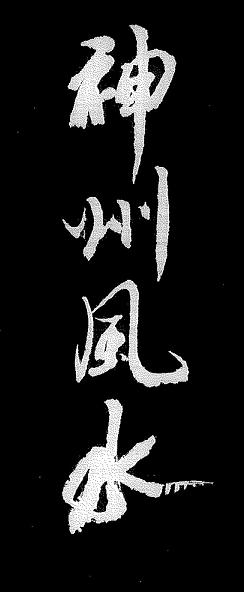 神州風水